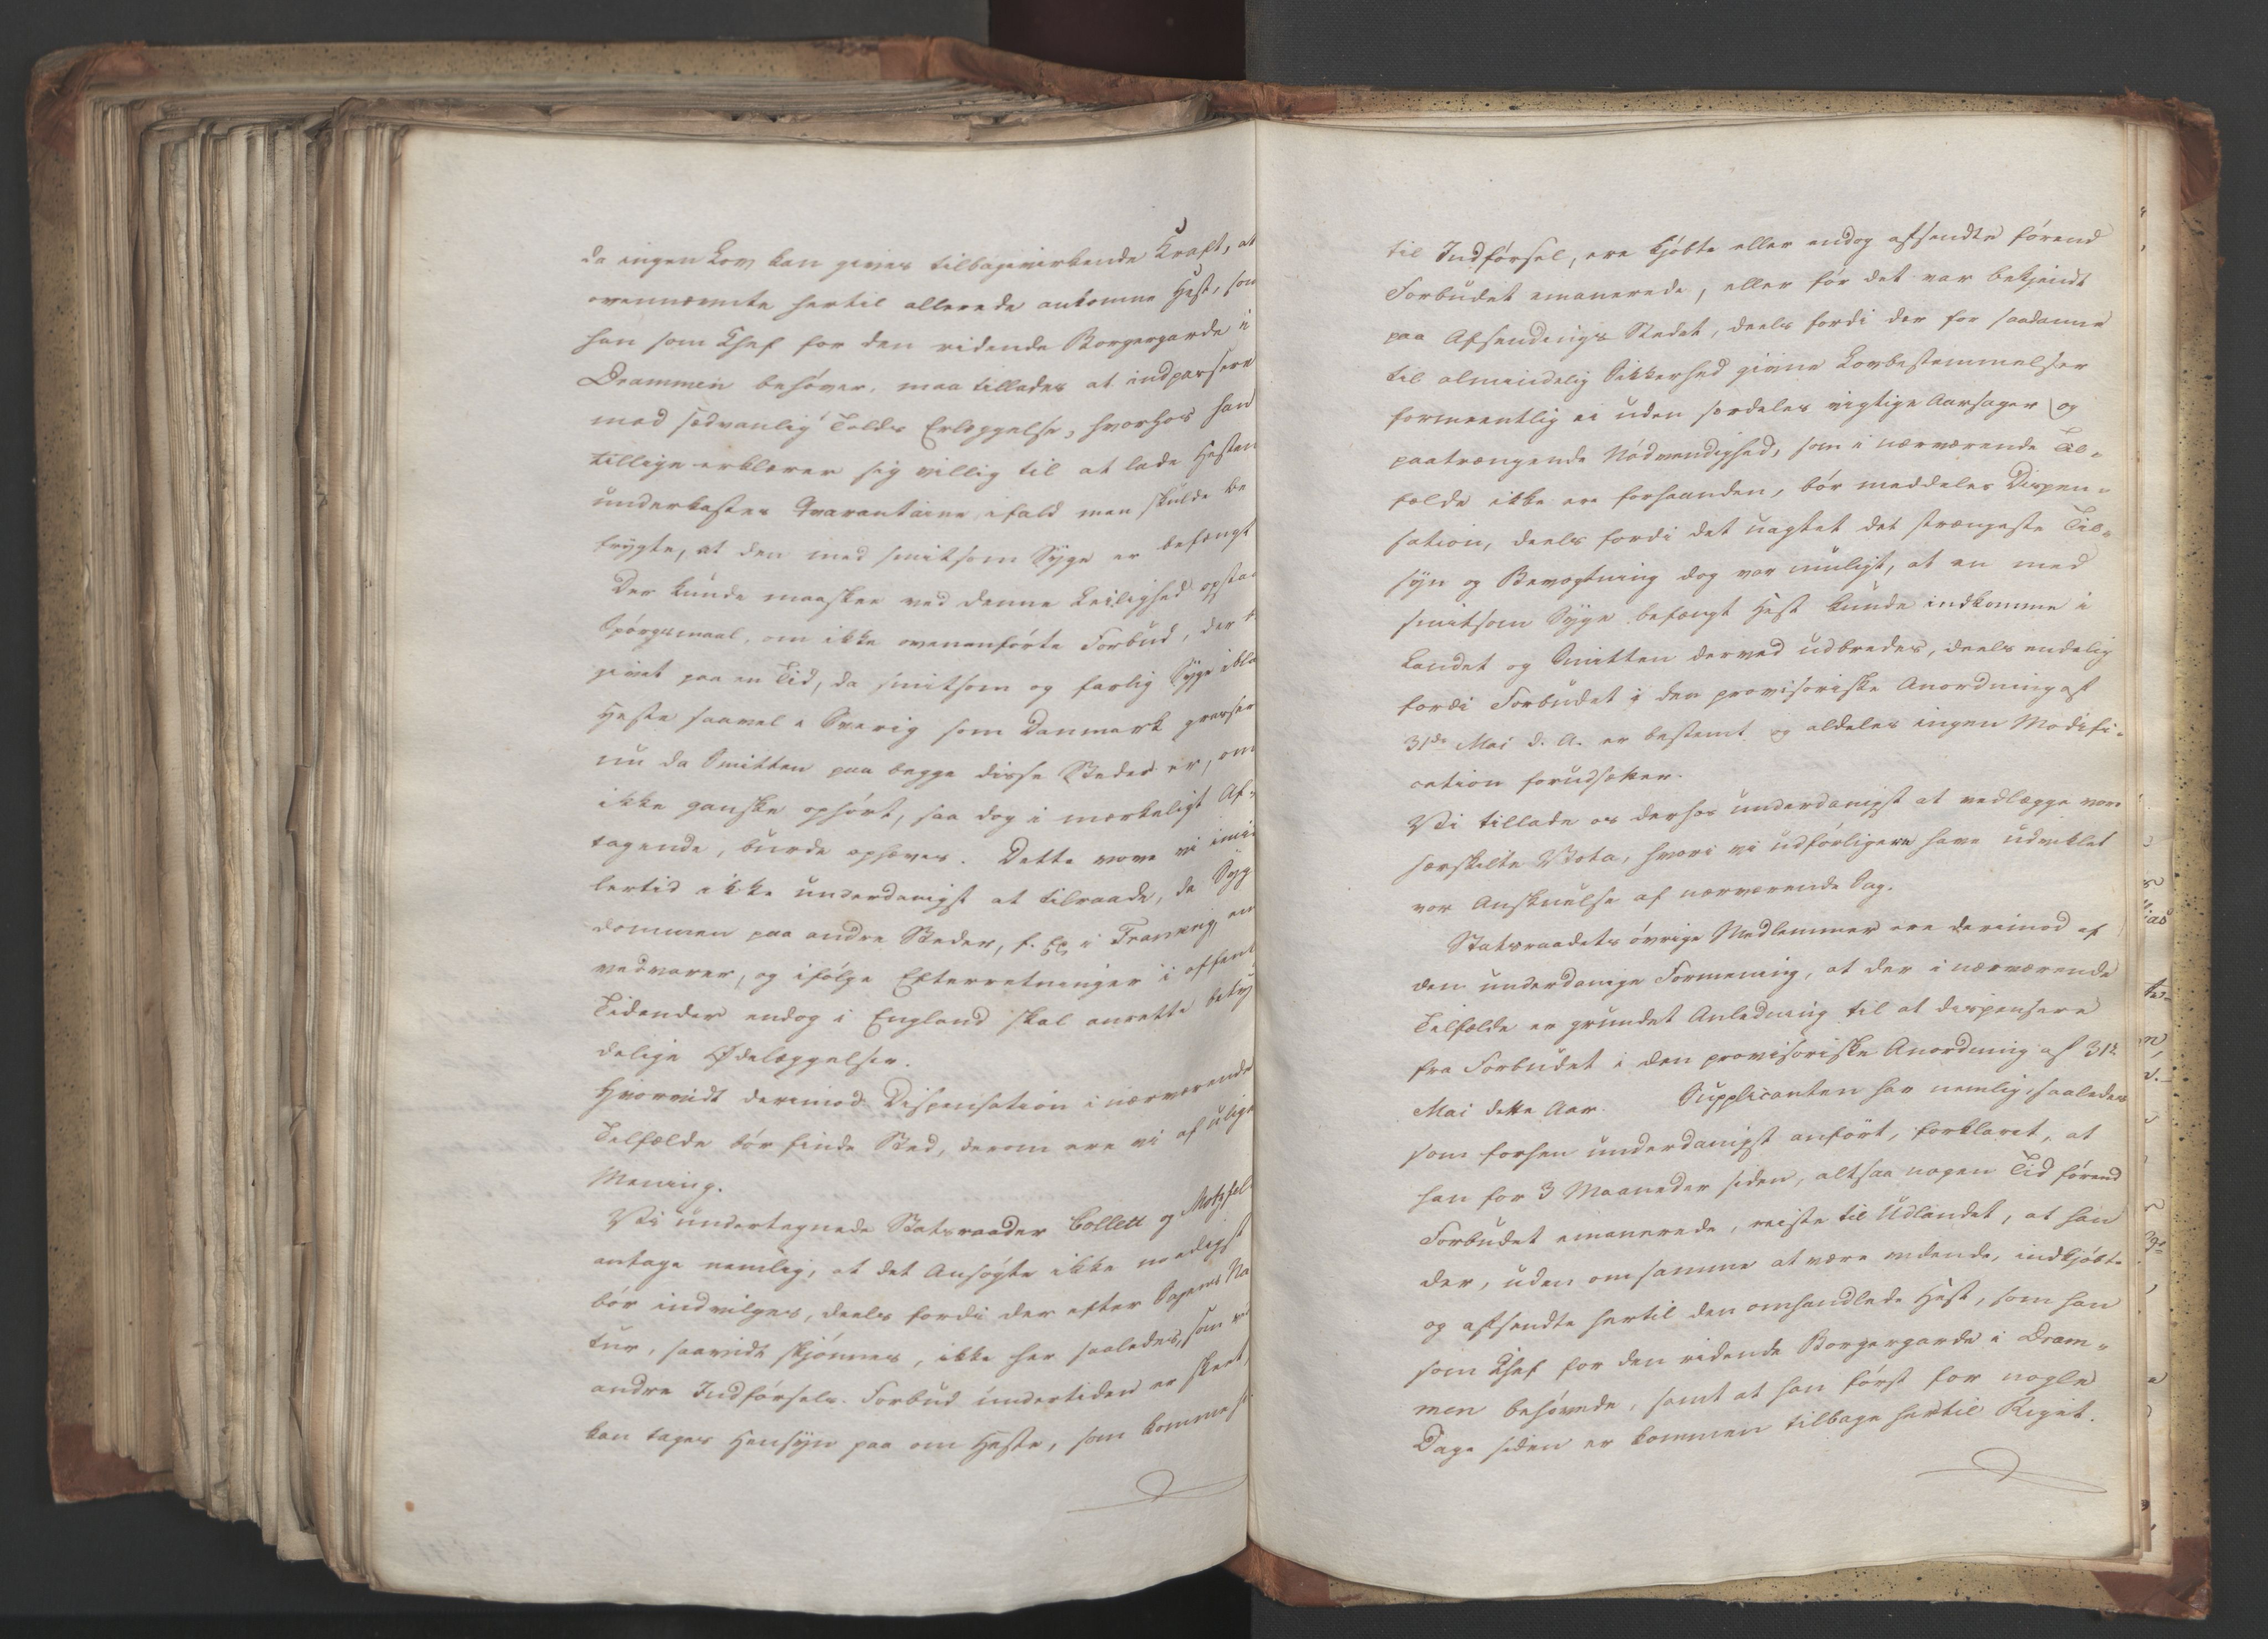 da ingen Lov kan gives tilbagevirkende Kraft, at
ovennævnte hertil allerede ankomne Hest, som
han som Chef for den ridende Borgergarde i
Drammen behøver, maa tillades at indpassere
mod sædvanlig Tolds Erlæggelse, hvorhos han
tillige erklærer sig villig til at lade Hesten
underkastes Qvarantaine ifald man skulde be
frygte, at den med smitsom Syge er befængt
Der kunde maaskee ved denne Leilighed opstaa
Spørgsmaal, om ikke ovenanførte Forbud, der
givet paa en Tid, da smitsom og farlig Syge ibla
Heste saavel i Sverig som Danmark grasser
nu da Smitten paa begge disse Steder er, om
ikke ganske ophørt, saa dog i mærkeligt Af-
tagende, burde ophæves. Dette vove vi imid
lertid ikke underdanigst at tilraade, da Syg
dommen paa andre Steder, f. Ex i Frankrig, en
vedvarer, og ifølge Efterretninger i offent
Tidender endog i England skal anrette bety
delige Ødelæggelser.
Hvorvidt derimod Dispensation i nærværende
Tilfælde bør finde Sted, derom ere vi af ulige
Mening.
Vi undertegnede Statsraader Collett og Motzfel
antage nemlig, at det Ansøgte ikke naadigst
bør indvilges, deels fordi der efter Sagens Na
tur, saavidt skjønnes, ikke her saaledes, som ve
andre Indførsels-Forbud undertiden er skeet,
kan tages Hensyn paa om Heste, som komme
til Indførsel, ere kjøbte eller endog afsendte førend
Forbudet emanerede, eller før det var bekjendt
paa Afsendings Stedet, deels fordi der for saadanne
til almindelig Sikkerhed givne Lovbestemmelser
formeentlig ei uden særdeles vigtige Aarsager og
paatrængende Nødvendighed, som i nærværende Til-
fælde ikke ere forhaanden, bør meddeles Dispen-
sation, deels fordi det uagtet det strængeste Til-
syn og Bevogtning dog var muligt, at en med
smitsom Syge befængt Hest kunde indkomme i
Landet og Smitten derved udbredes, deels endelig
fordi Forbudet i den provisoriske Anordning af
31de Mai d. A. er bestemt og aldeles ingen Modifi-
cation forudsætter.
Vi tillade os derhos underdanigst at vedlægge vore
særskilte Vota, hvori vi udførligere have udviklet
vor Anskuelse af nærværende Sag.
Statsraadets øvrige Medlemmer ere derimod af
den underdanige Formening, at der i nærværende
Tilfælde er grundet Anledning til at dispensere
fra Forbudet i den provisoriske Anordning af 31te
Mai dette Aar. Supplicanten har nemlig, saaledes
som forhen underdanigst anført, forklaret, at
han for 3 Maaneder siden, altsaa nogen Tid førend
Forbudet emanerede, reiste til Udlandet, at han
der, uden om samme at være vidende, indkjøbte
og afsendte hertil den omhandlede Hest, som han
som Chef for den ridende Borgergarde i Dram-
men behøvede, samt at han først for nogle
Dage siden er kommen tilbage hertil Riget.